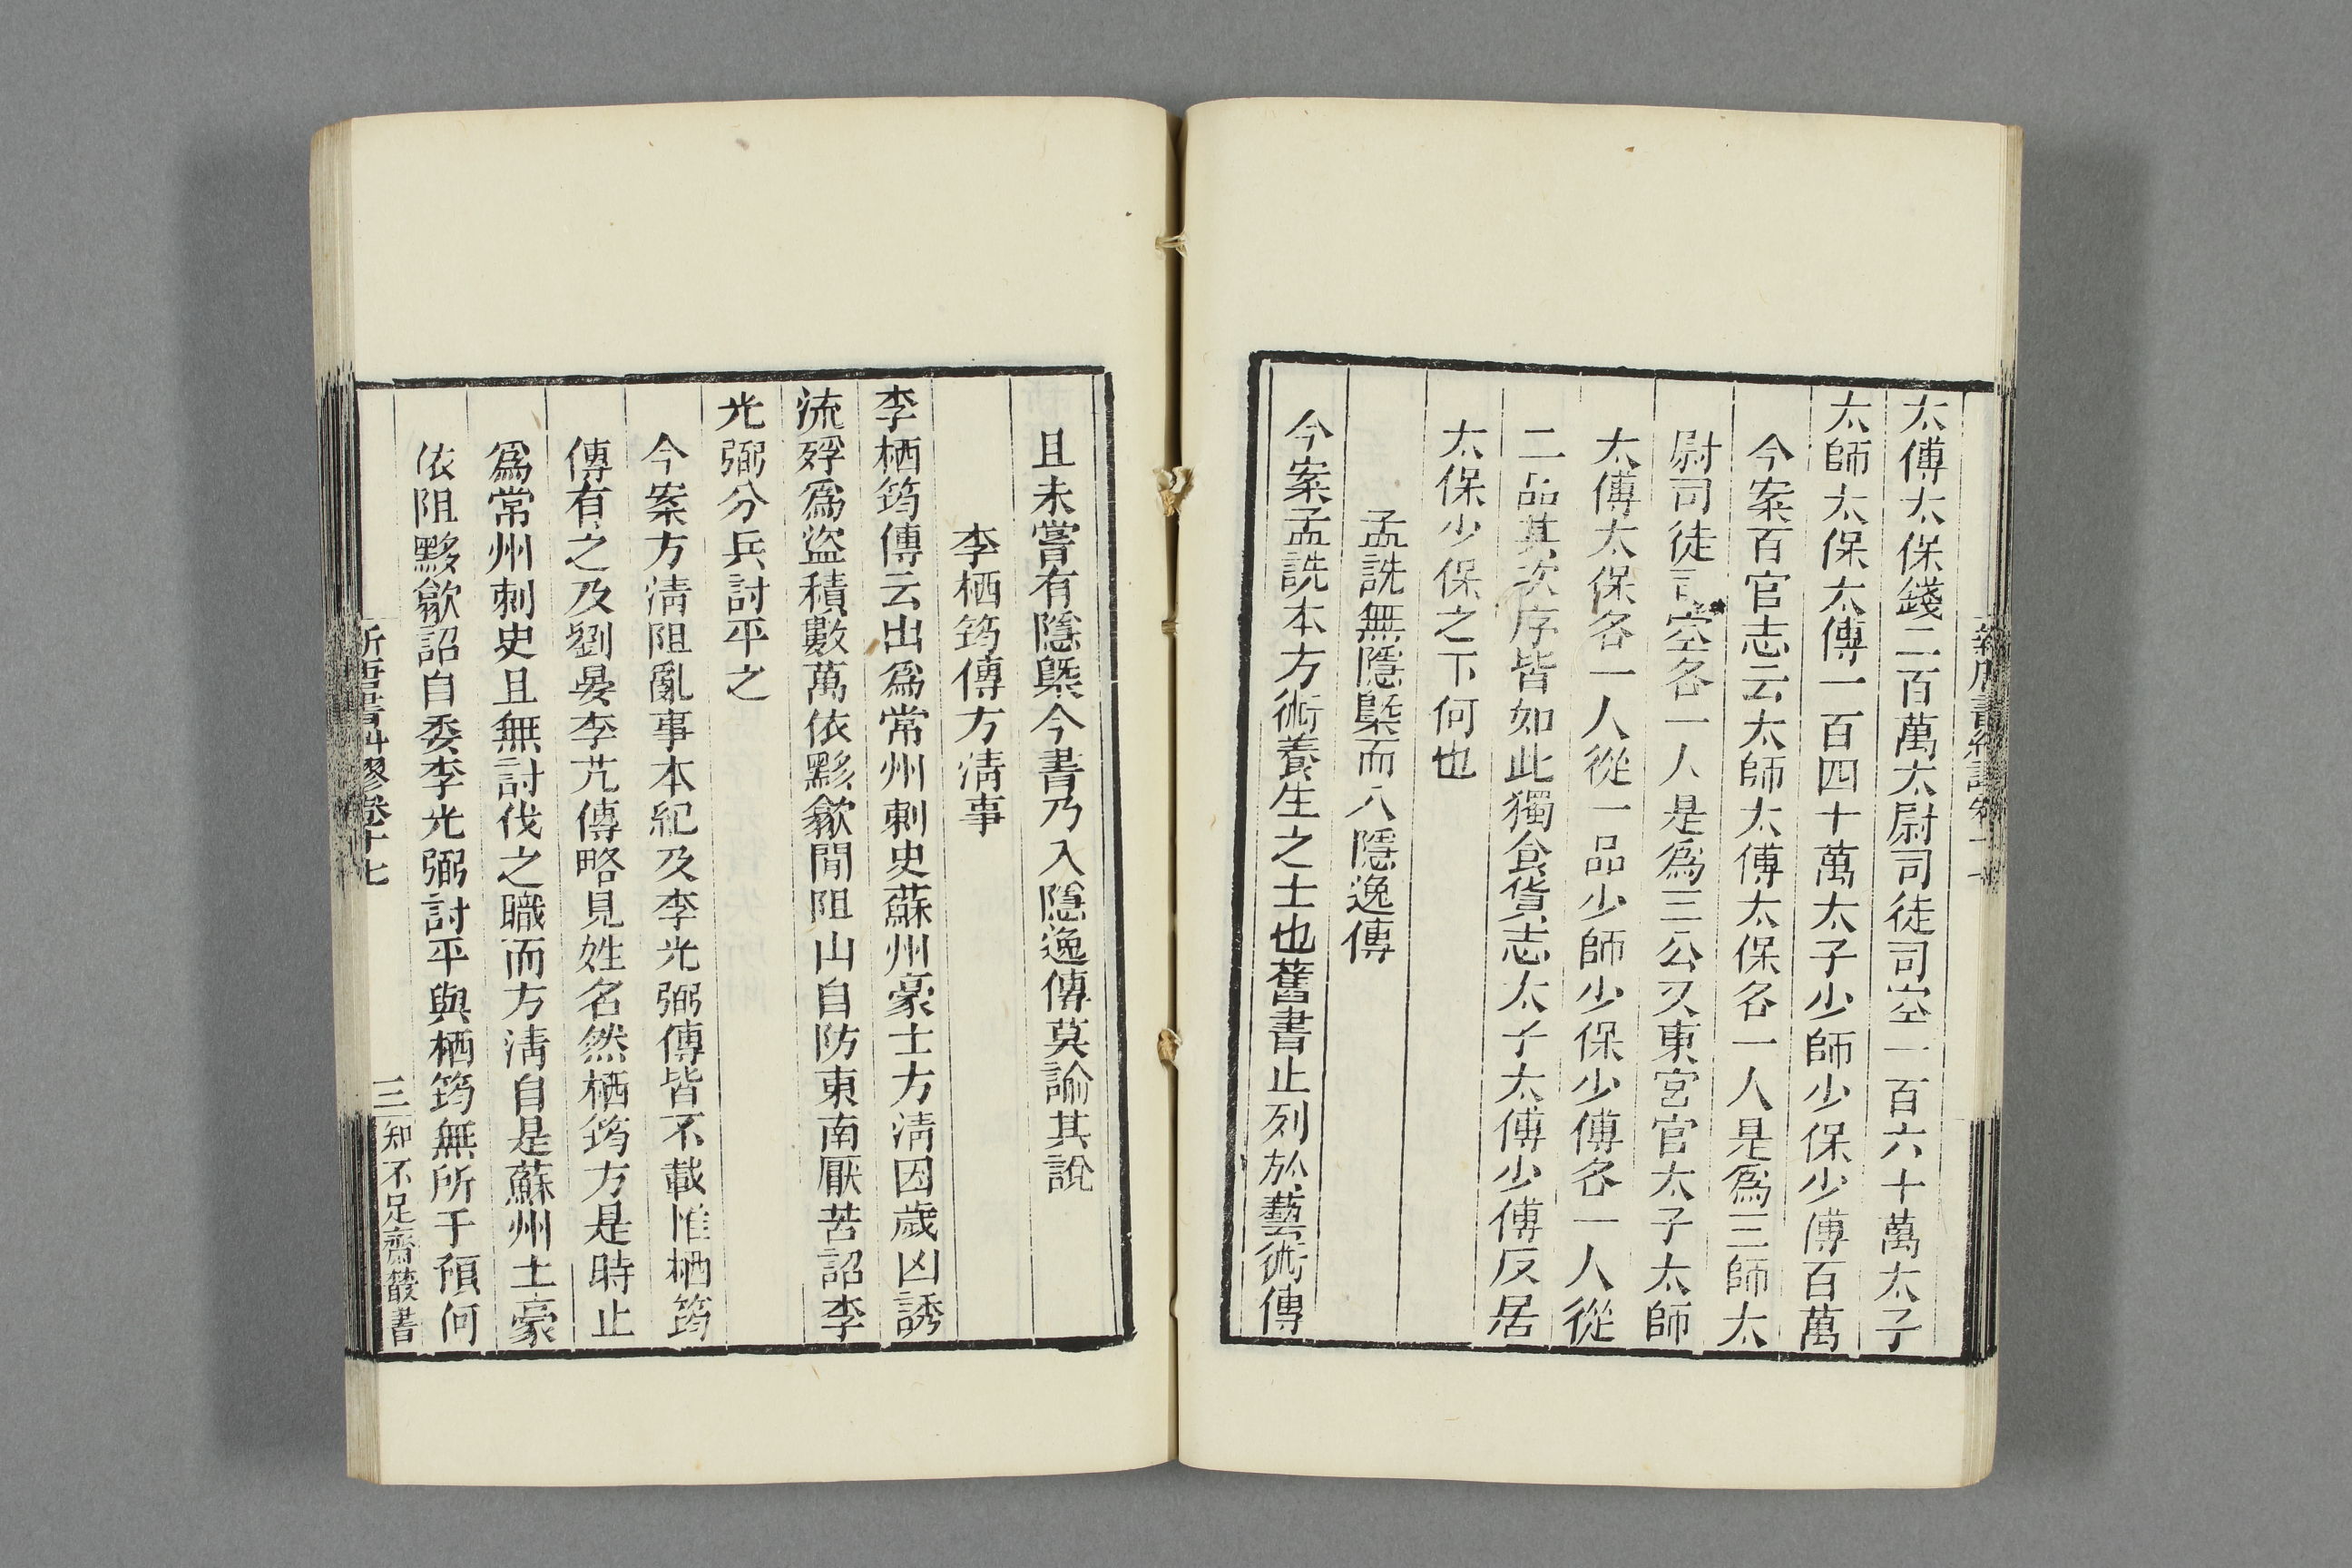 太傅太保錢二百萬太尉司徒司空一百六十萬太子
太師太保太傅一百四十萬太子少師少保少傅百萬
今案百官志云太師太傅太保各一人是爲三師太
尉司徒司空各一人是爲三公又東宮官太子太師
太傅太保各一人從一品少師少保少傅各一人從
二品其次序皆如此獨食貨志太子太傅少傅反居
太保少保之下何也
孟詵無隱槩而入隱逸傳
今案孟詵本方術養生之士也舊書止列於藝術傳
且未嘗有隱槩今書乃入隱逸傳莫諭其說
李栖筠傳方淸事
李栖筠傳云出爲常州刺史蘇州豪士方淸因歲凶誘
流殍爲盜積數萬依黟歙閒阻山自防東南厭苦詔李
光弼分兵討平之
今案方淸阻亂事本紀及李光弼傳皆不載惟栖筠
傳有之及劉晏李芃傳略見姓名然栖筠方是時止
爲常州刺史且無討伐之職而方淸自是蘇州土豪
依阻黟歙詔自委李光弼討平與栖筠無所干預何
新唐書糾謬卷十七
三
知不足齋叢書